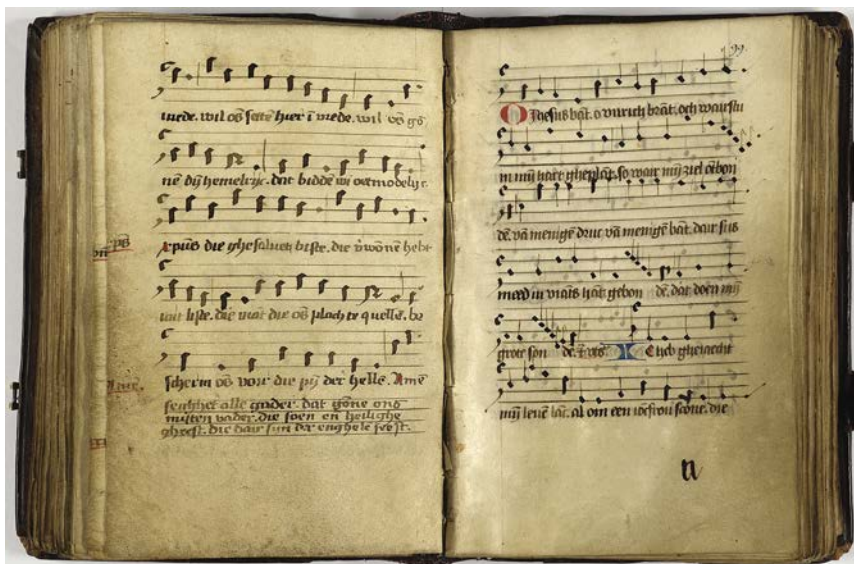 mede. wil ōs setē hier ī vrede. wil vōs gō
nē dȳ hemelrijc. dat biddē wi oetmodelijc
xpūs die ghesalvet biste. die
van liste. die mar die ōs plach te quellē. be
scherm ōs voir die pȳ der hellē. Amē
segghet alle gader. dat gōne ons
mijten vader. die soen en heilighe
gheest. die dair sijn der enghele feest.
99
O Ihesus bāt. o vurich brāt. och wairstu
in mȳ hart gheplāt. so wair mȳ ziel ōtbon
dē. vā menigē druc vā menigē bāt. dair sus
meed in hāt gebon dē. dat doen mȳ
grote son dē. Ic heb ghejaecht
mȳ levē lāc. al om een iōcfrou scone. die
n